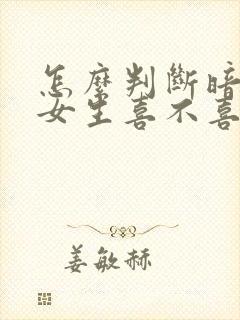 怎麼判斷暗
女生喜不喜
姜敏赫